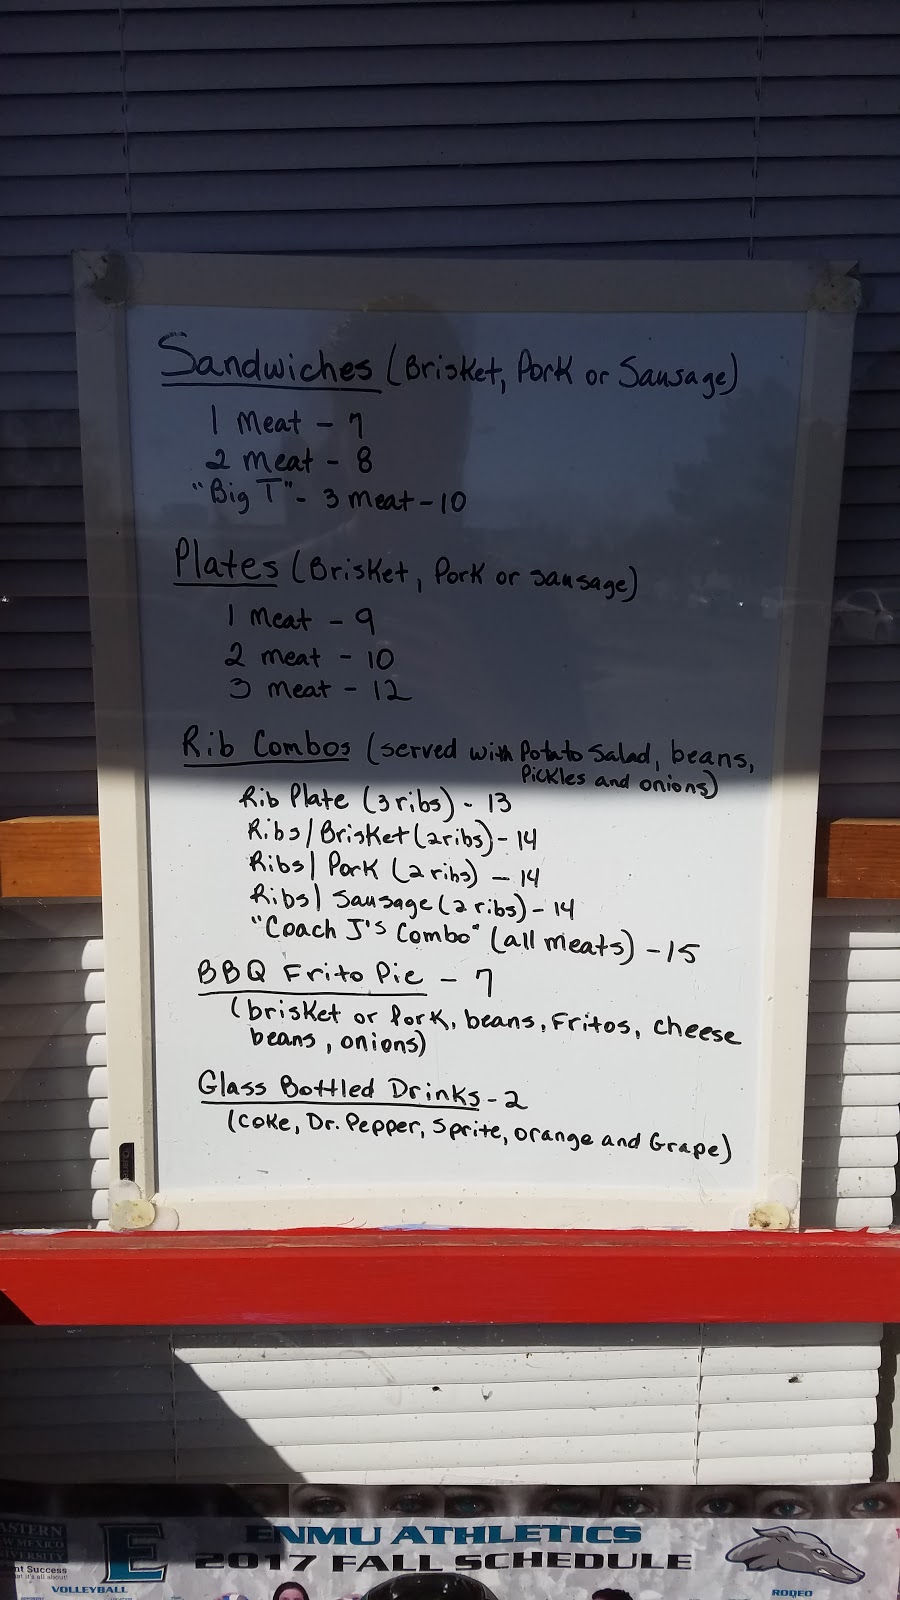 Sandwiches (Brisket, Pork or Sausage)
1 Meat - 7
2 Meat - 8
"Big T" - 3 Meat - 10
Plates (Brisket, Pork or sausage)
1 Meat - 9
2 meat - 10
3 meat - 12
Rib Combos (served with Potato Salad, beans,
Pickles and onions)
Rib Plate (3 ribs) - 13
Ribs/Brisket (2 ribs) - 14
Ribs/Pork (2 ribs) - 14
Ribs/Sausage (2 ribs) - 14
"Coach J's Combo" (all meats) - 15
BBQ Frito Pie - 7
(brisket or Pork, beans, Fritos, cheese
beans, onions)
Glass Bottled Drinks - 2
(Coke, Dr. Pepper, Sprite, orange and Grape)
E
ENMU ATHLETICS
2017 FALL SCHEDULE
nt Success
VOLLEYBALL
RODEO